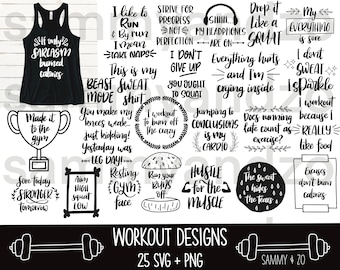 If only
SARCASM
burned
calories
I like to
RUN
By run
I mean
TAKE NAPS
STRIVE FOR
PROGRESS
NOT
PERFECTION
Shhh
MY HEADPHONES
ARE ON
Drop it
like a
SQUAT
My
EVERYTHING
is sore
BEAST
MODE
This is my
SWEAT
shirt
I DON'T
GIVE UP
Everything hurts
and I'm
crying inside
I don't
SWEAT
I Sparkle
I workout
because I
REALLY
like food
Made it
to the
gym
You make my
knees weak
Just kidding!
Yesterday was
LEG DAY!
I workout
to burn off
the crazy
YOU OUGHT
to SQUAT
Jumping to
CONCLUSIONS
is my
CARDIO
Does running
late count as
exercise?
Sore today
STRONGER
tomorrow
AIM
HIGH
SQUAT
LOW
Resting
GYM
face
Run your
BUNS
off
HUSTLE
for the
MUSCLE
The sweat
hides
the tears
Excuses
don't burn
calories
WORKOUT DESIGNS
25 SVG + PNG
SAMMY & ZO